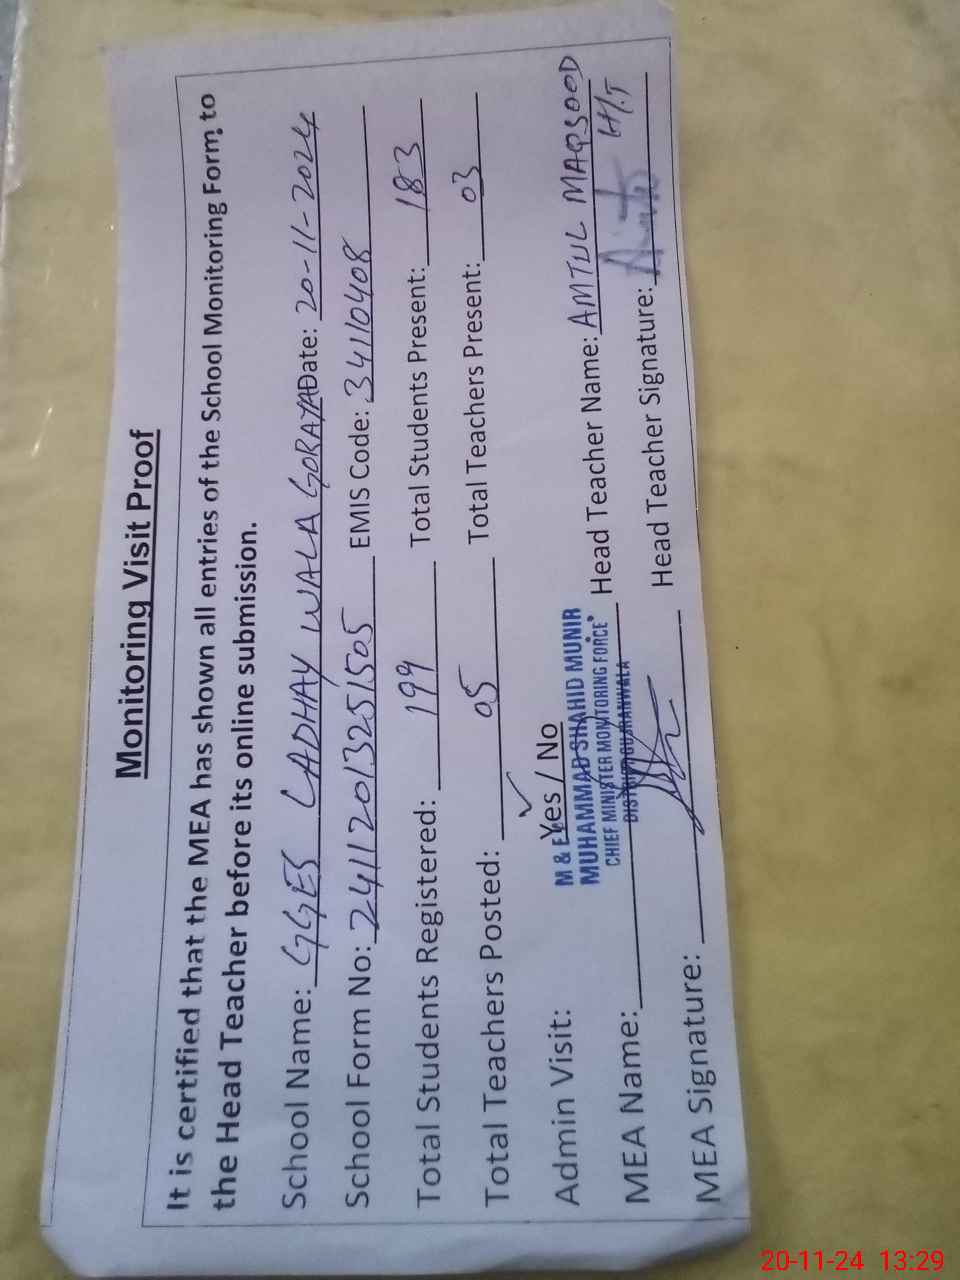 Monitoring Visit Proof
It is certified that the MEA has shown all entries of the School Monitoring Form to
the Head Teacher before its online submission.
School Name: GGES LADHAY WALA GORAYA Date: 20-11-2024
School Form No: 241120132251505 EMIS Code: 34110408
Total Students Registered: 199 Total Students Present: 183
Total Teachers Posted: 05 Total Teachers Present: 03
Admin Visit: Yes / No
M & E
MUHAMMAD SHAHID MUNIR
CHIEF MINISTER MONITORING FORCE
DISTRICT GUJRANWALA
MEA Name: Head Teacher Name: AMTUL MAQSOOD
H/T
MEA Signature: Head Teacher Signature:
20-11-24 13:29